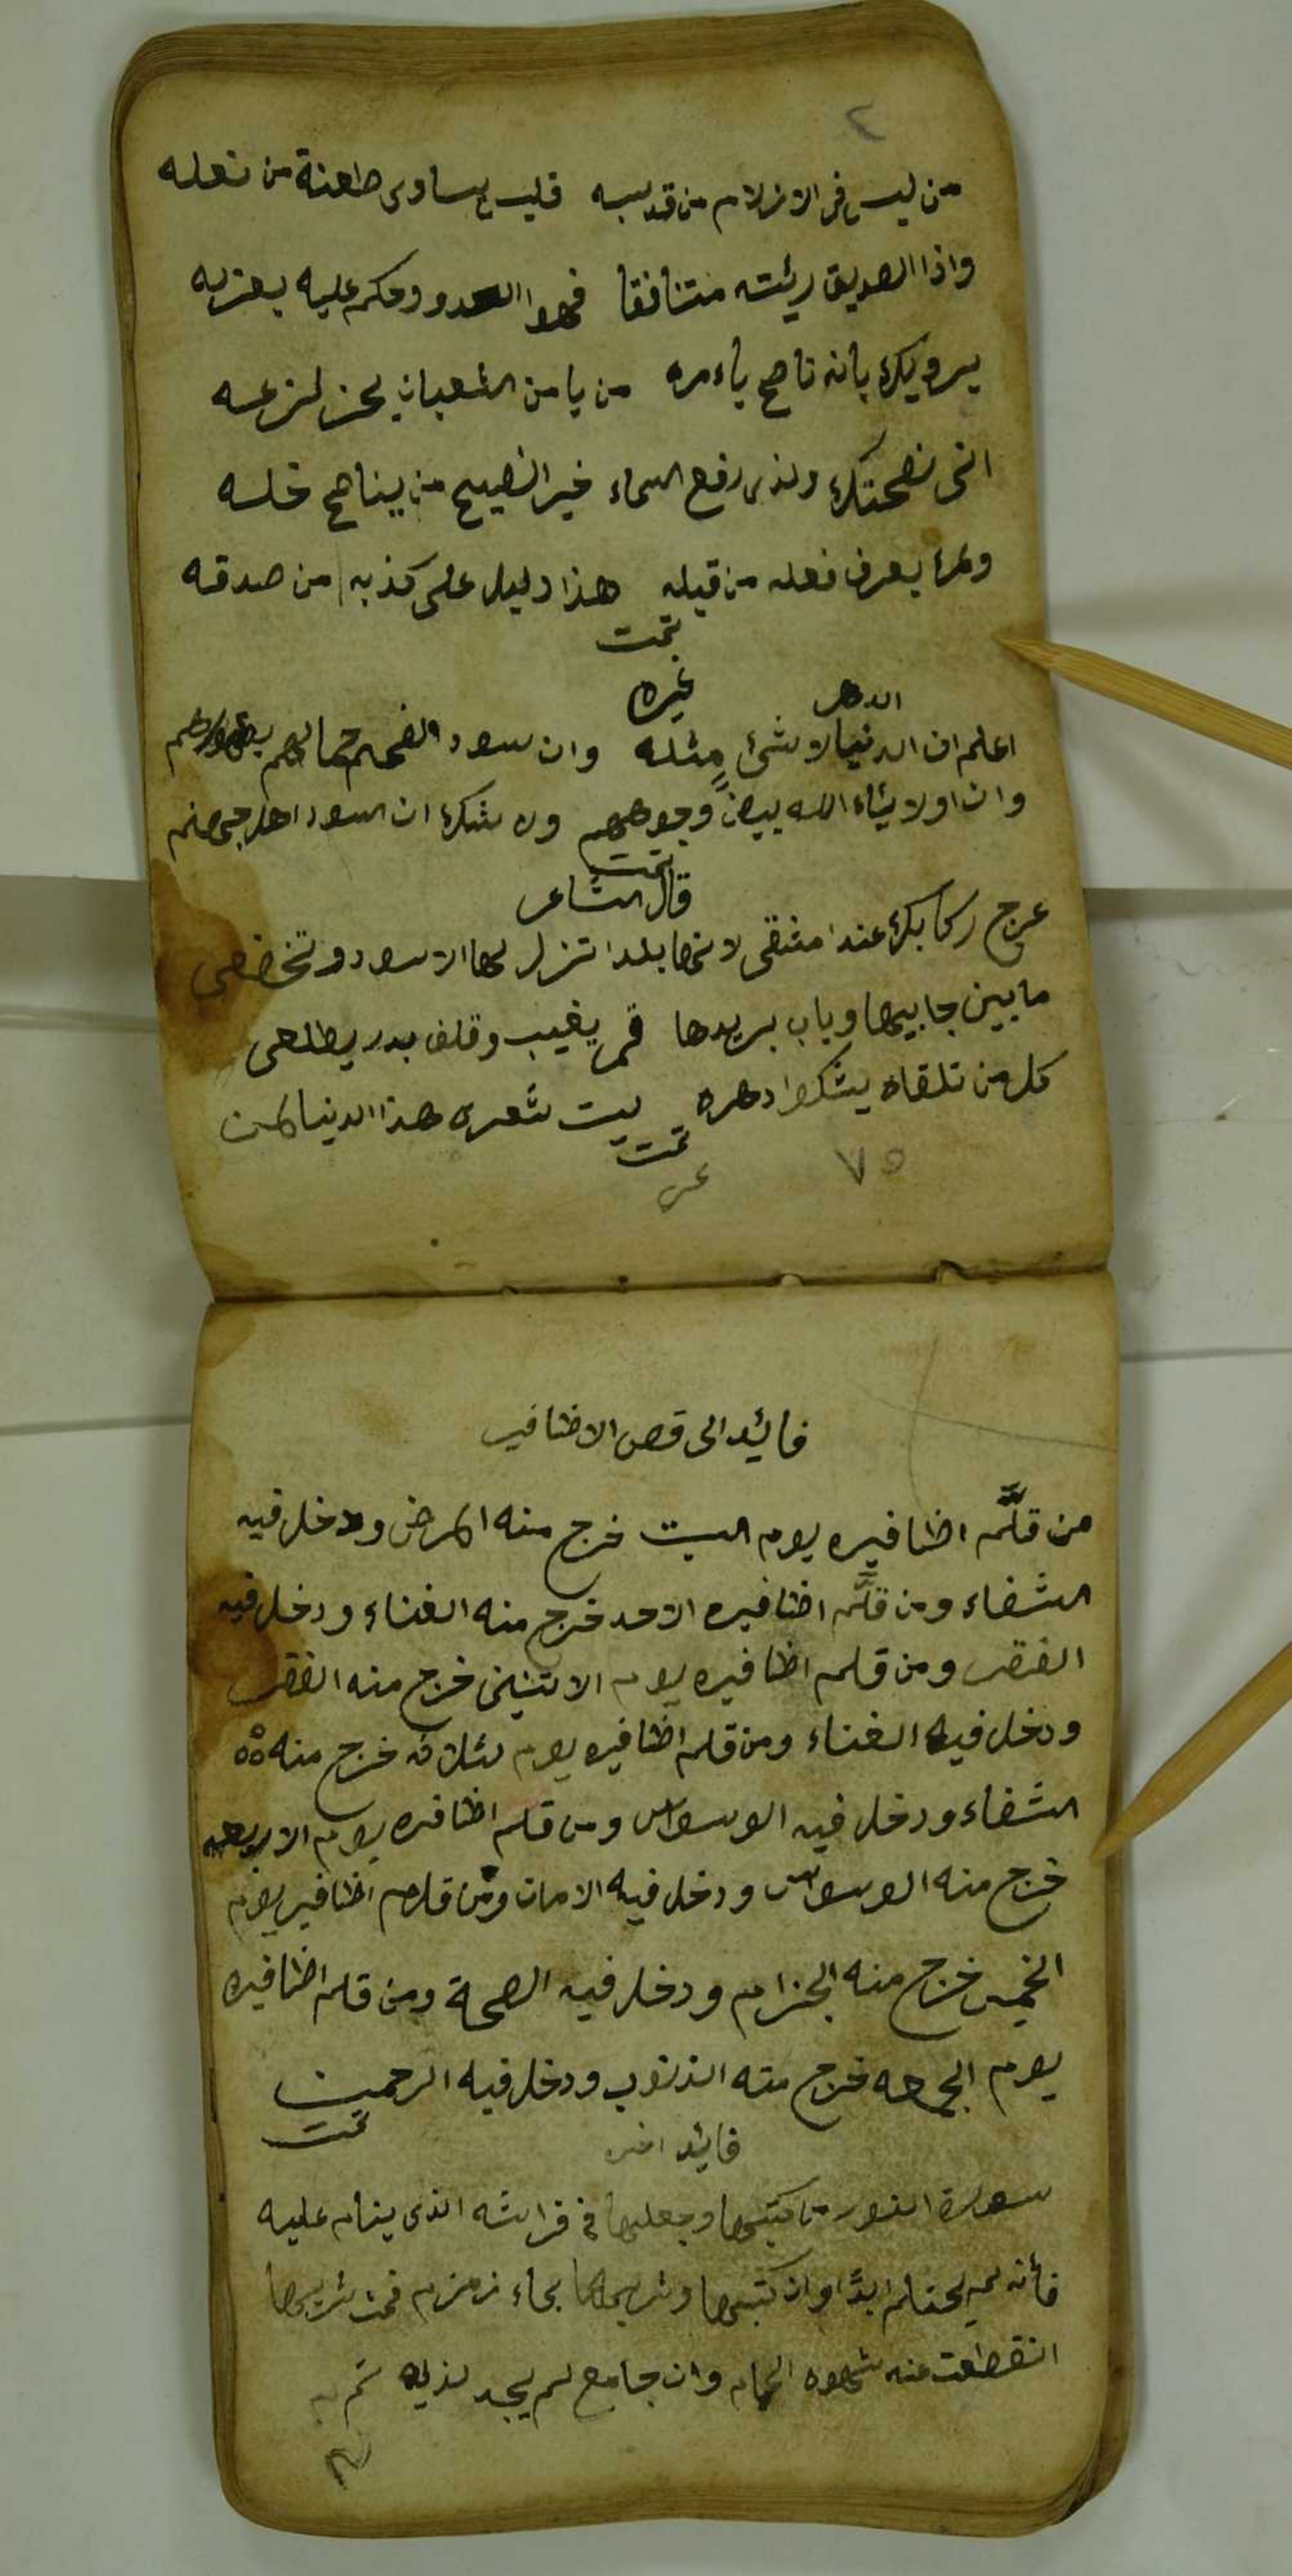 ٢
من ليس في الازلام من قد سبه فليس يساوى طعنة من نعله
واذا الصديق رئيته متنافقا فهوا العدو وحكم عليه بعزله
يرويك بانه ناصح باءمره من يامن الثعبان يحز لزعسه
انى نصحتك ولذى رفع السماء خير النصيح من يناصح خلسه
ولمرا يعرف فعله من قبله هذا دليل على كذبه من صدقه
تمت
غيره
الدهر
اعلم ان الدنيا لا شئ مثله وان سود الفحم جمالهم
وان اولا يشاء الله بيضاً وجوههم ولا شك ان السود اهل جهنم
تمت
قال الشاعر
عرج ركابك عندا مشقى لانها بلدا تزل لها الاسود وتخضعى
ما بين جابيها وباب بريدها قمر يغيب وقلف بدر يطلعى
كل من تلقاه يشكوا دهره ليت شعرى هذا الدنيا لمن
تمت
٧٥
فائيد الى قص الاظافير
من قلَّم اظافيره يوم السبت خرج منه المرض ودخل فيه
الشفاء ومن قلَّم اظافيره الاحد خرج منه الغناء ودخل فيه
الفقر ومن قلم اظافيره يوم الاتنين خرج منه الفقر
ودخل فيه الغناء ومن قلم اظافيره يوم ثلاثه خرج منه
الشفاء ودخل فيه الوسواس ومن قلم اظافره يوم الاربعه
خرج منه الوسواس ودخل فيه الامان ومن قلم اظافير يوم
الخميس خرج منه الجزام ودخل فيه الصحة ومن قلم اظافيره
يوم الجمعه خرج منه الذنوب ودخل فيه الرحمت
تمت
فائيد اخره
سورة النور من كتبها وجعلها فى فراشه الذى ينام عليه
فأنه لم يحتلم ابدًا وان كتبها وشربها بماء زمزم فمن شربها
انقطعت عنه شهوه الجماع وان جامع لم يجد لذه